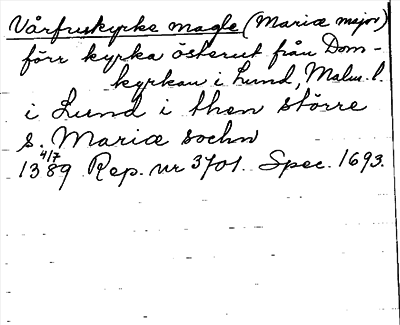 Vårfruekyrke magle (Mariæ major)
förr kyrka österut från Dom-
kyrkan i Lund, Malm. l.
i Lund i then större
S. Mariæ sochn
4/7
1389 Rep. nr 3701. Spec. 1693.